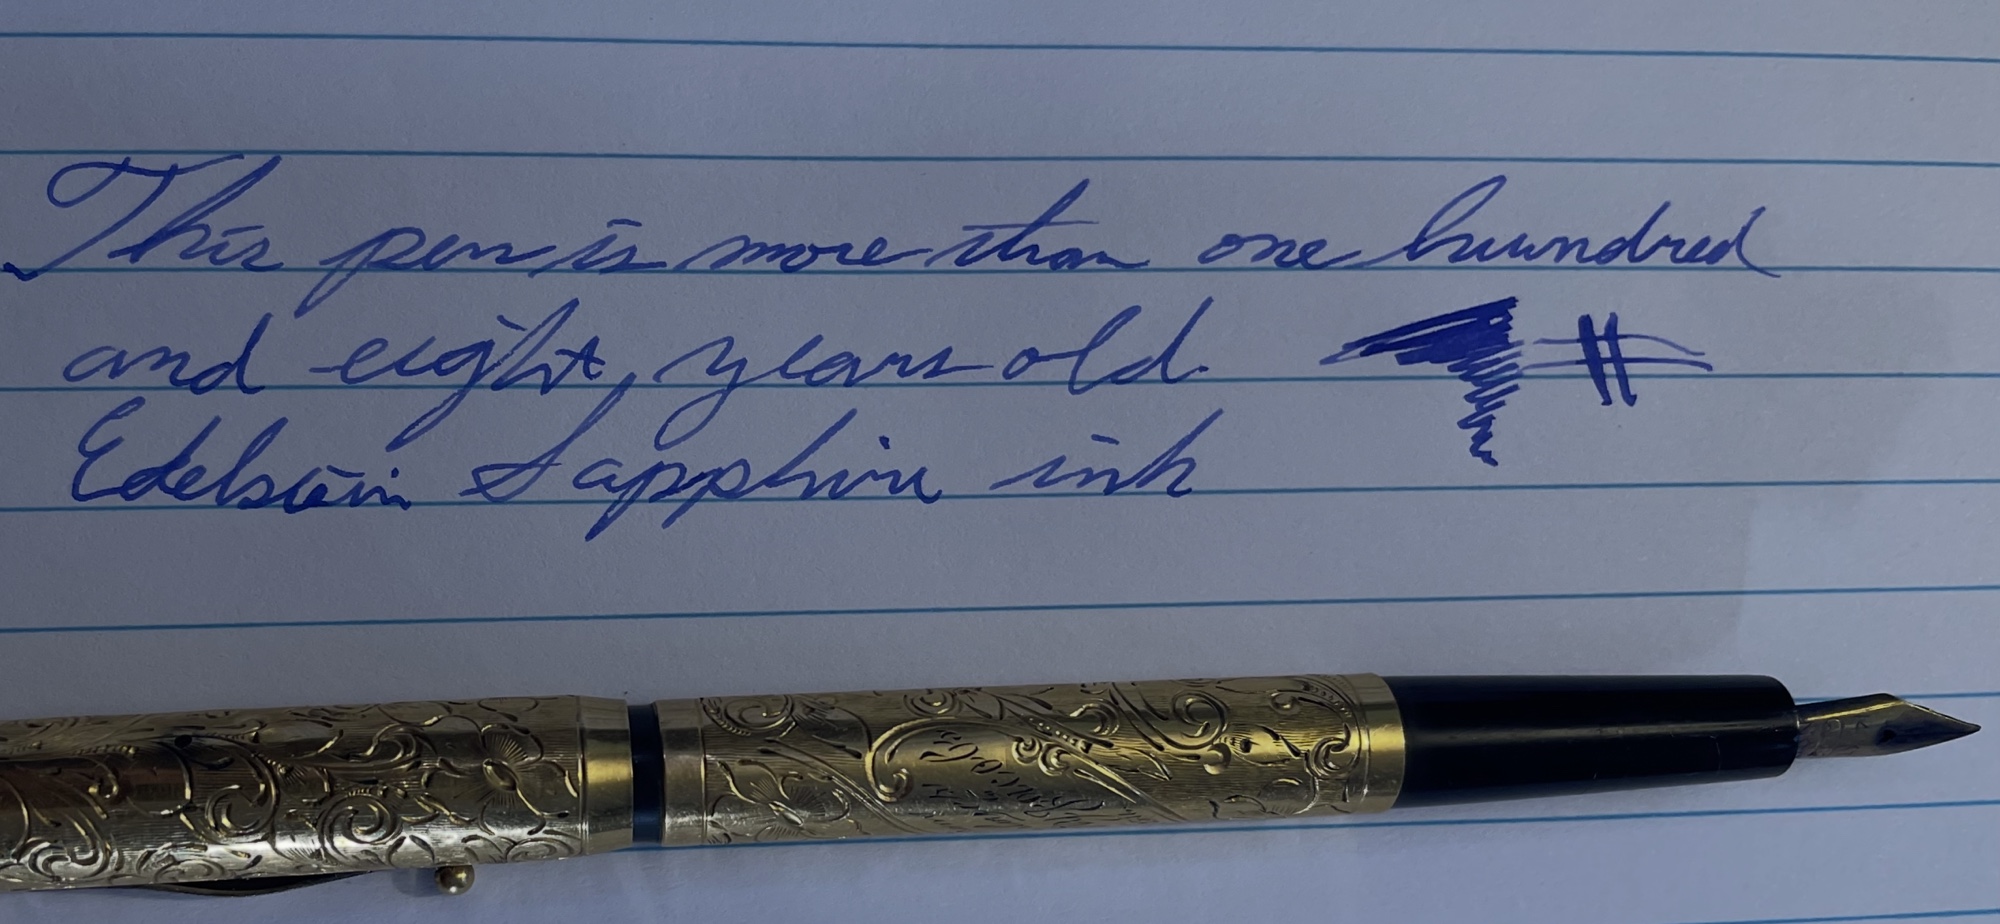 This pen is more than one huundred
and eight, years old.
Edelstein Sapphire ink